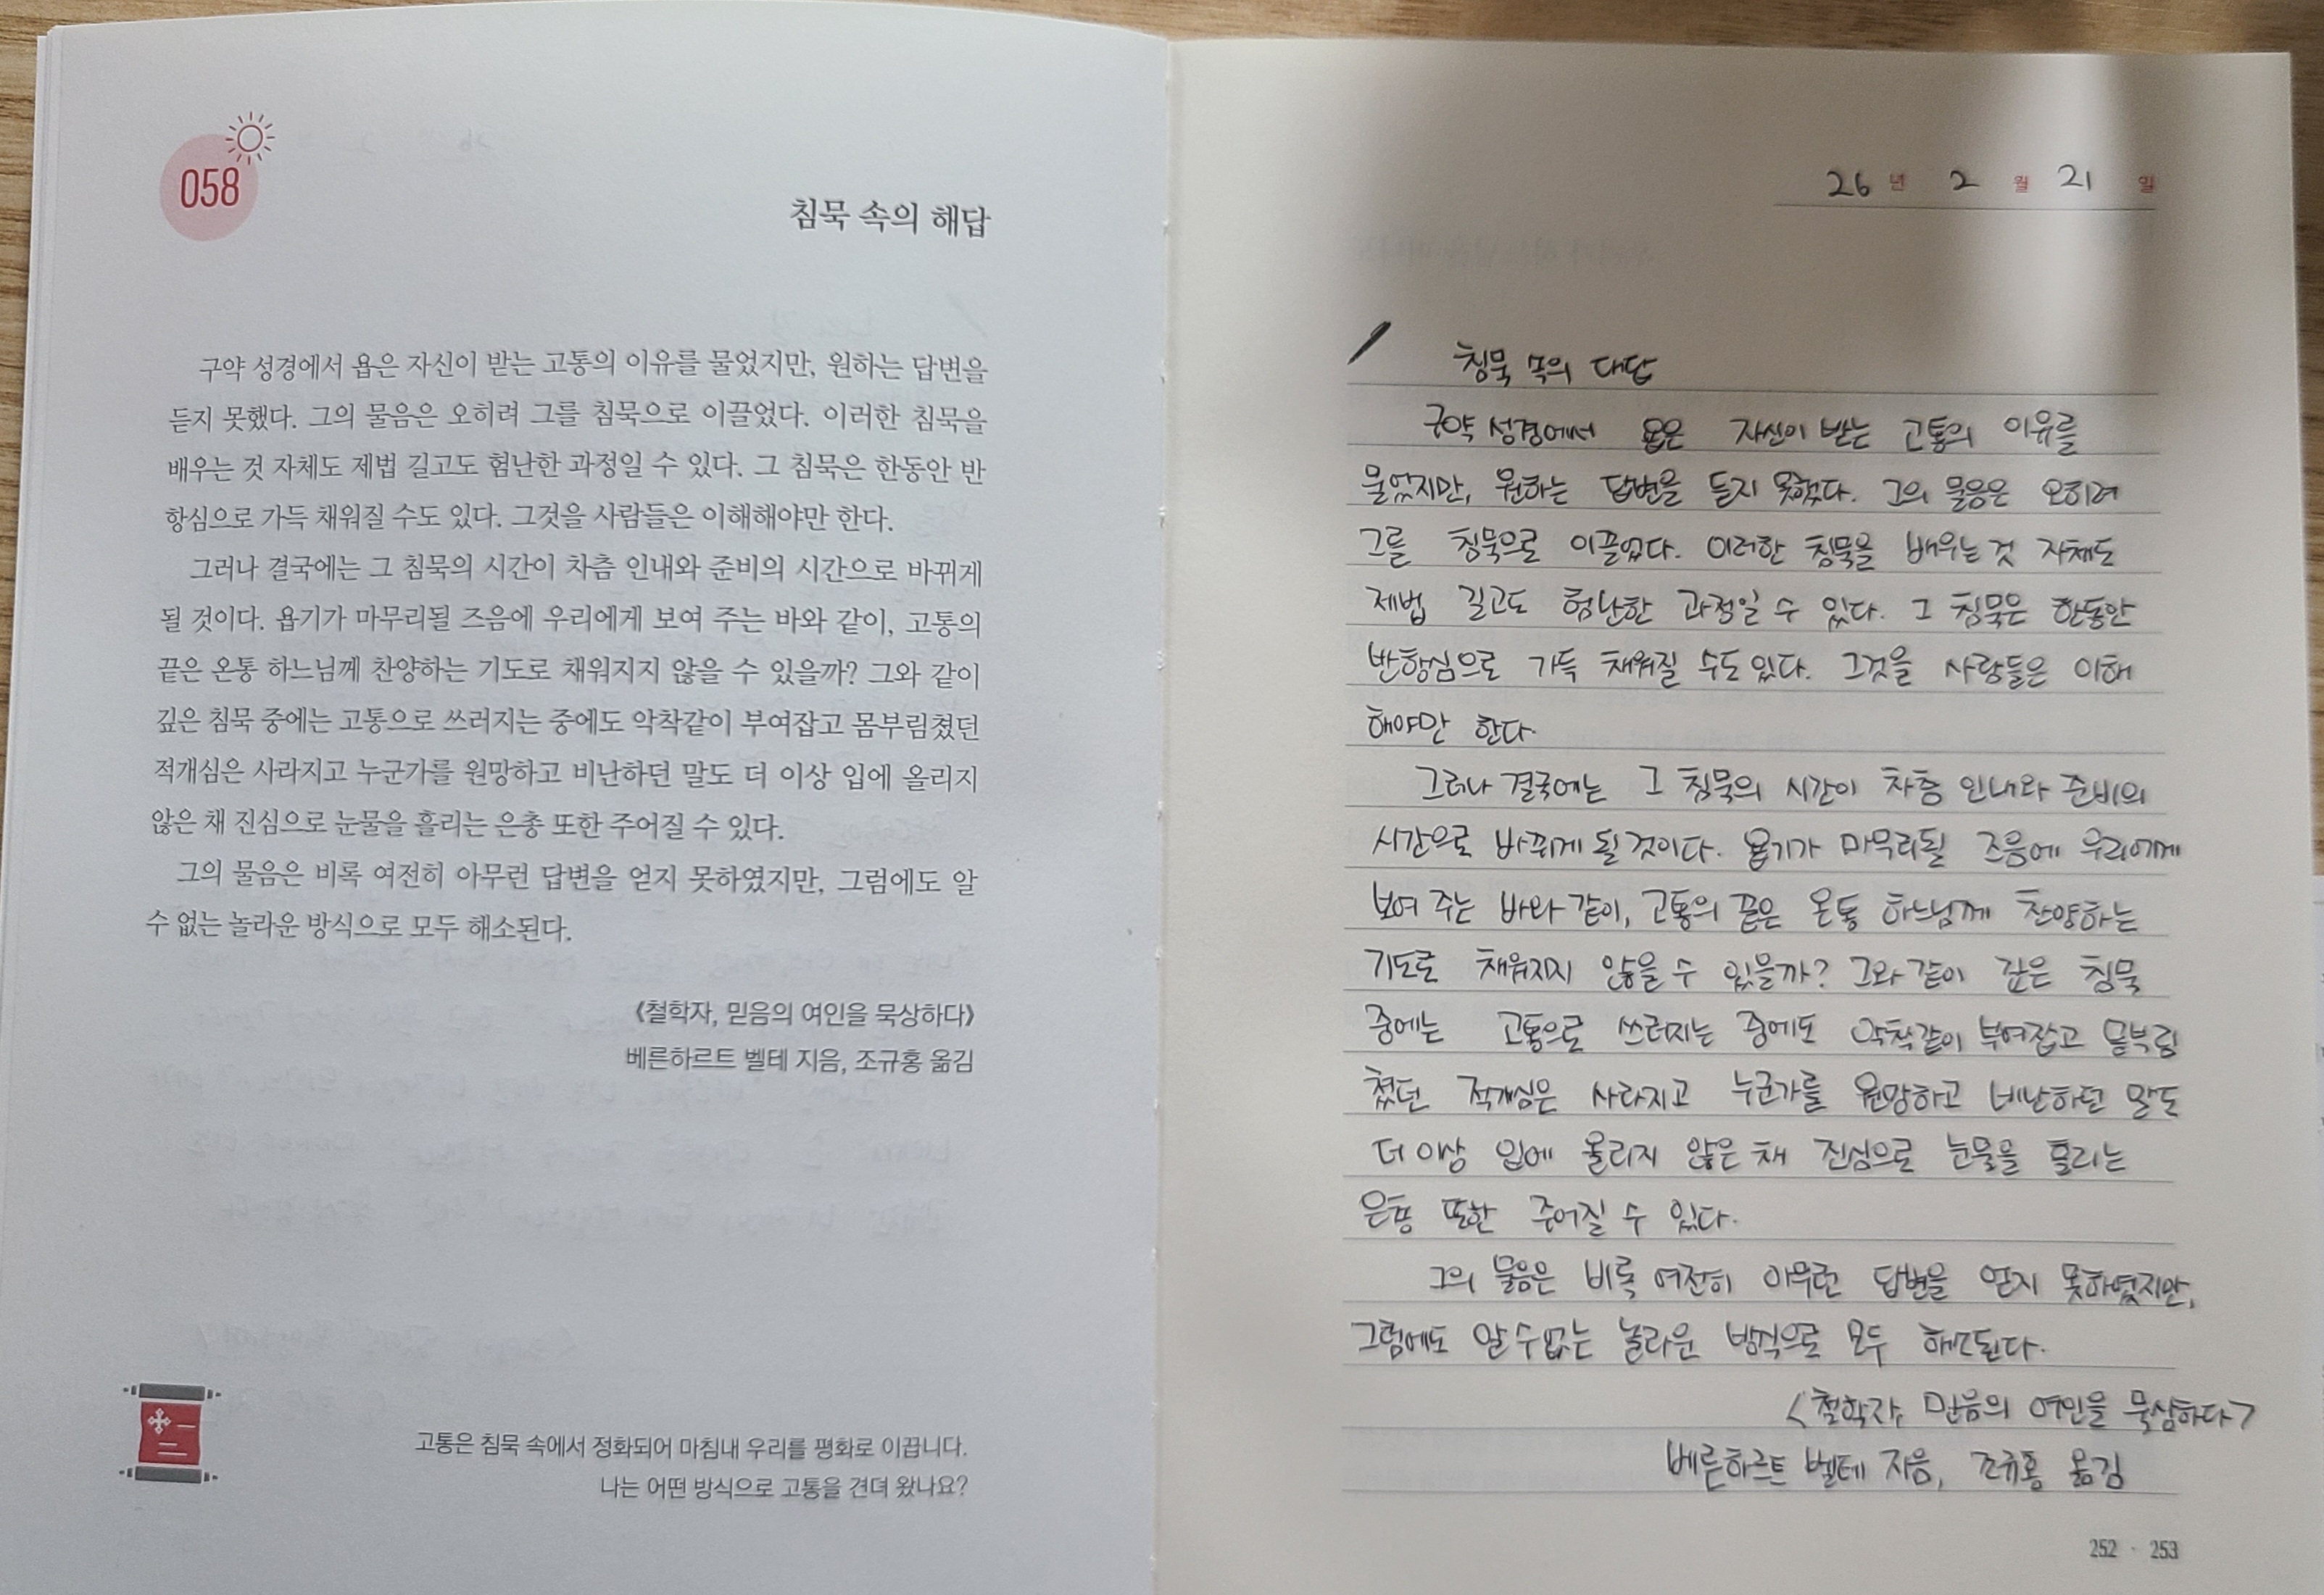 058
침묵 속의 해답
구약 성경에서 욥은 자신이 받는 고통의 이유를 물었지만, 원하는 답변을
듣지 못했다. 그의 물음은 오히려 그를 침묵으로 이끌었다. 이러한 침묵을
배우는 것 자체도 제법 길고도 험난한 과정일 수 있다. 그 침묵은 한동안 반
항심으로 가득 채워질 수도 있다. 그것을 사람들은 이해해야만 한다.
그러나 결국에는 그 침묵의 시간이 차츰 인내와 준비의 시간으로 바뀌게
될 것이다. 욥기가 마무리될 즈음에 우리에게 보여 주는 바와 같이, 고통의
끝은 온통 하느님께 찬양하는 기도로 채워지지 않을 수 있을까? 그와 같이
깊은 침묵 중에는 고통으로 쓰러지는 중에도 악착같이 부여잡고 몸부림쳤던
적개심은 사라지고 누군가를 원망하고 비난하던 말도 더 이상 입에 올리지
않은 채 진심으로 눈물을 흘리는 은총 또한 주어질 수 있다.
그의 물음은 비록 여전히 아무런 답변을 얻지 못하였지만, 그럼에도 알
수 없는 놀라운 방식으로 모두 해소된다.
《철학자, 믿음의 여인을 묵상하다》
베른하르트 벨테 지음, 조규홍 옮김
고통은 침묵 속에서 정화되어 마침내 우리를 평화로 이끕니다.
나는 어떤 방식으로 고통을 견뎌 왔나요?
26년 2월 21일
침묵 속의 대답
구약 성경에서 욥은 자신이 받는 고통의 이유를
물었지만, 원하는 답변을 듣지 못했다. 그의 물음은 오히려
그를 침묵으로 이끌었다. 이러한 침묵을 배우는 것 자체도
제법 길고도 험난한 과정일 수 있다. 그 침묵은 한동안
반항심으로 가득 채워질 수도 있다. 그것을 사람들은 이해
해야만 한다.
그러나 결국에는 그 침묵의 시간이 차츰 인내와 준비의
시간으로 바뀌게 될 것이다. 욥기가 마무리될 즈음에 우리에게
보여 주는 바와 같이, 고통의 끝은 온통 하느님께 찬양하는
기도로 채워지지 않을 수 있을까? 그와 같이 깊은 침묵
중에는 고통으로 쓰러지는 중에도 악착같이 부여잡고 몸부림
쳤던 적개심은 사라지고 누군가를 원망하고 비난하던 말도
더 이상 입에 올리지 않은 채 진심으로 눈물을 흘리는
은총 또한 주어질 수 있다.
그의 물음은 비록 여전히 아무런 답변을 얻지 못하였지만,
그럼에도 알 수 없는 놀라운 방식으로 모두 해소된다.
<철학자, 믿음의 여인을 묵상하다>
베른하르트 벨테 지음, 조규홍 옮김
252 · 253